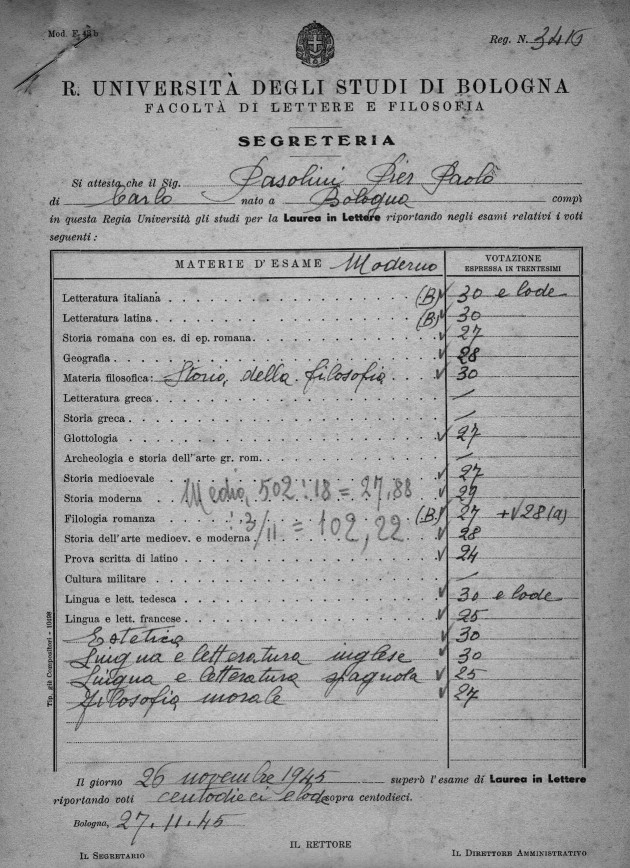 Mod. F. 42 b
Reg. N.
R. UNIVERSITÀ DEGLI STUDI DI BOLOGNA
FACOLTÀ DI LETTERE E FILOSOFIA
SEGRETERIA
Si attesta che il Sig. Pasolini Pier Paolo
di Carlo nato a Bologna compì
in questa Regia Università gli studi per la Laurea in Lettere riportando negli esami relativi i voti
seguenti :
MATERIE D'ESAME Moderno VOTAZIONE
ESPRESSA IN TRENTESIMI
Letteratura italiana (B) 30 e lode
Letteratura latina (B) 30
Storia romana con es. di ep. romana 27
Geografia 28
Materia filosofica: Storia della filosofia 30
Letteratura greca /
Storia greca /
Glottologia 27
Archeologia e storia dell'arte gr. rom. /
Storia medioevale 27
Storia moderna 29
Media 502 : 18 = 27,88
Filologia romanza (B) 27 + 28 (a)
: 3/11 = 102,22
Storia dell'arte medioev. e moderna 28
Prova scritta di latino 24
Cultura militare /
Lingua e lett. tedesca 30 e lode
Lingua e lett. francese 25
Estetica 30
Lingua e letteratura inglese 30
Lingua e letteratura spagnola 25
filosofia morale 27
Tip. già Compositori - 10498
Il giorno 26 novembre 1945 superò l'esame di Laurea in Lettere
riportando voti centodieci e lode sopra centodieci.
Bologna, 27.11.45
IL RETTORE
IL SEGRETARIO IL DIRETTORE AMMINISTRATIVO